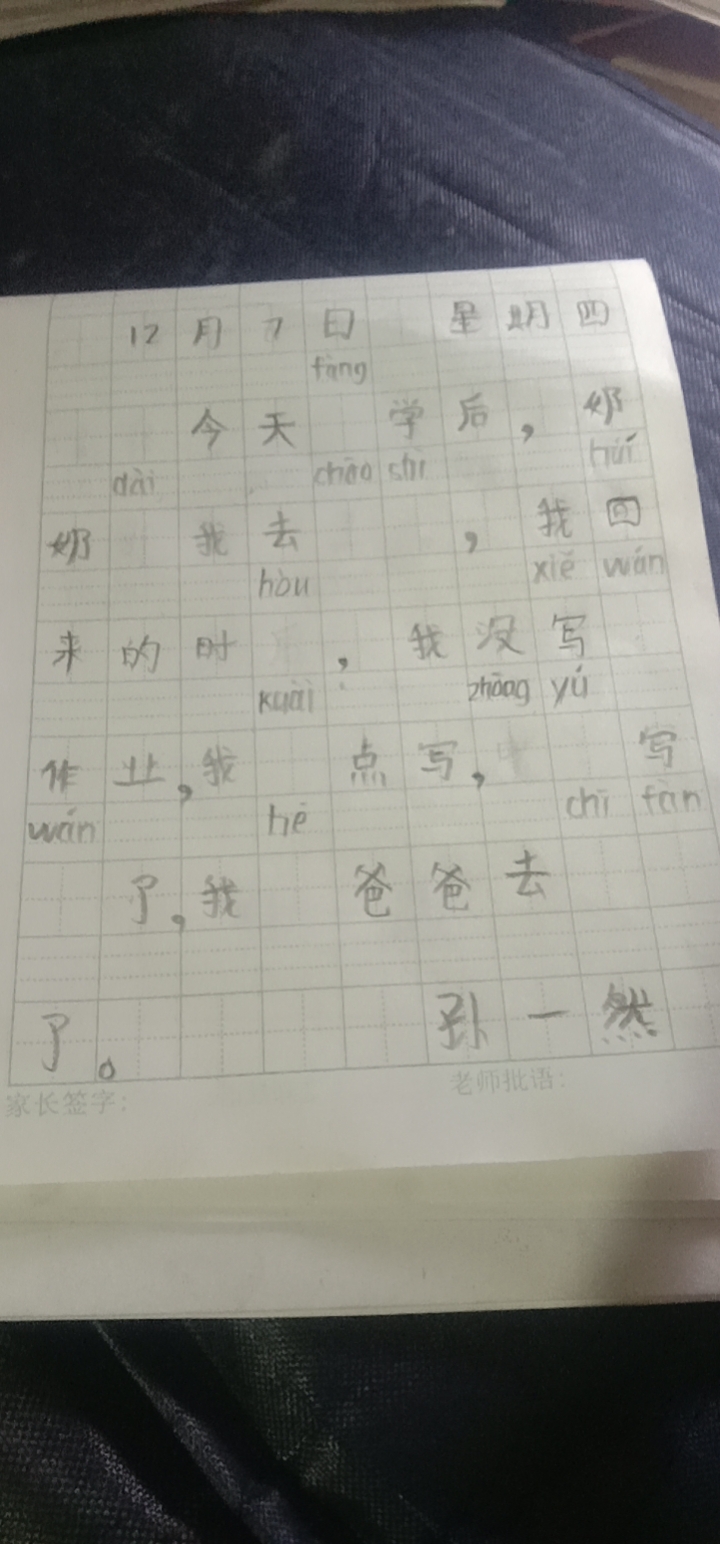 12月7日 星期四
fàng
今天 学后，奶
dài chāo shì huí
奶 我去 ，我回
hòu xiě wán
来的时 ，我没写
kuài zhōng yú
作业，我 点写， 写
wán hé chī fàn
了，我 爸爸去
了。 孙一然
家长签字： 老师批语：